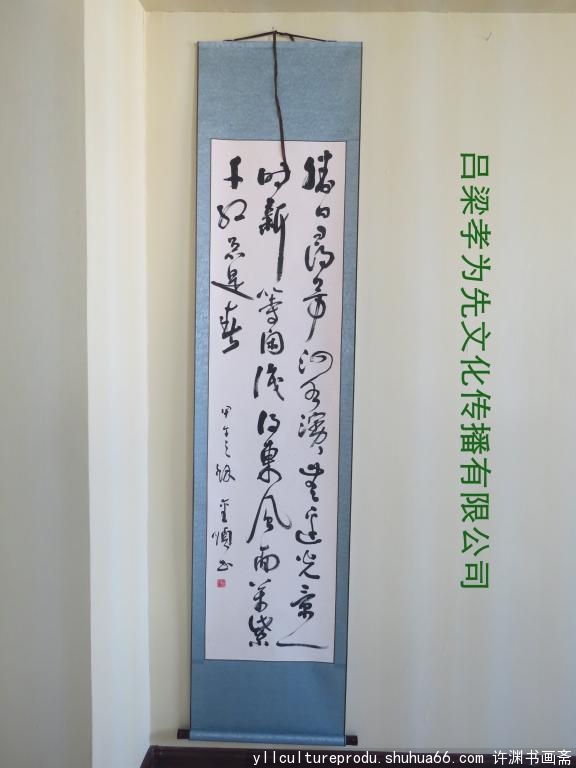 勝日尋芳泗水濱無邊光景一
时新等闲識得東風面萬紫
千红总是春
甲午之秋
吕梁孝为先文化传播有限公司
yllcultureprodu.shuhua66.com 许渊书画斋